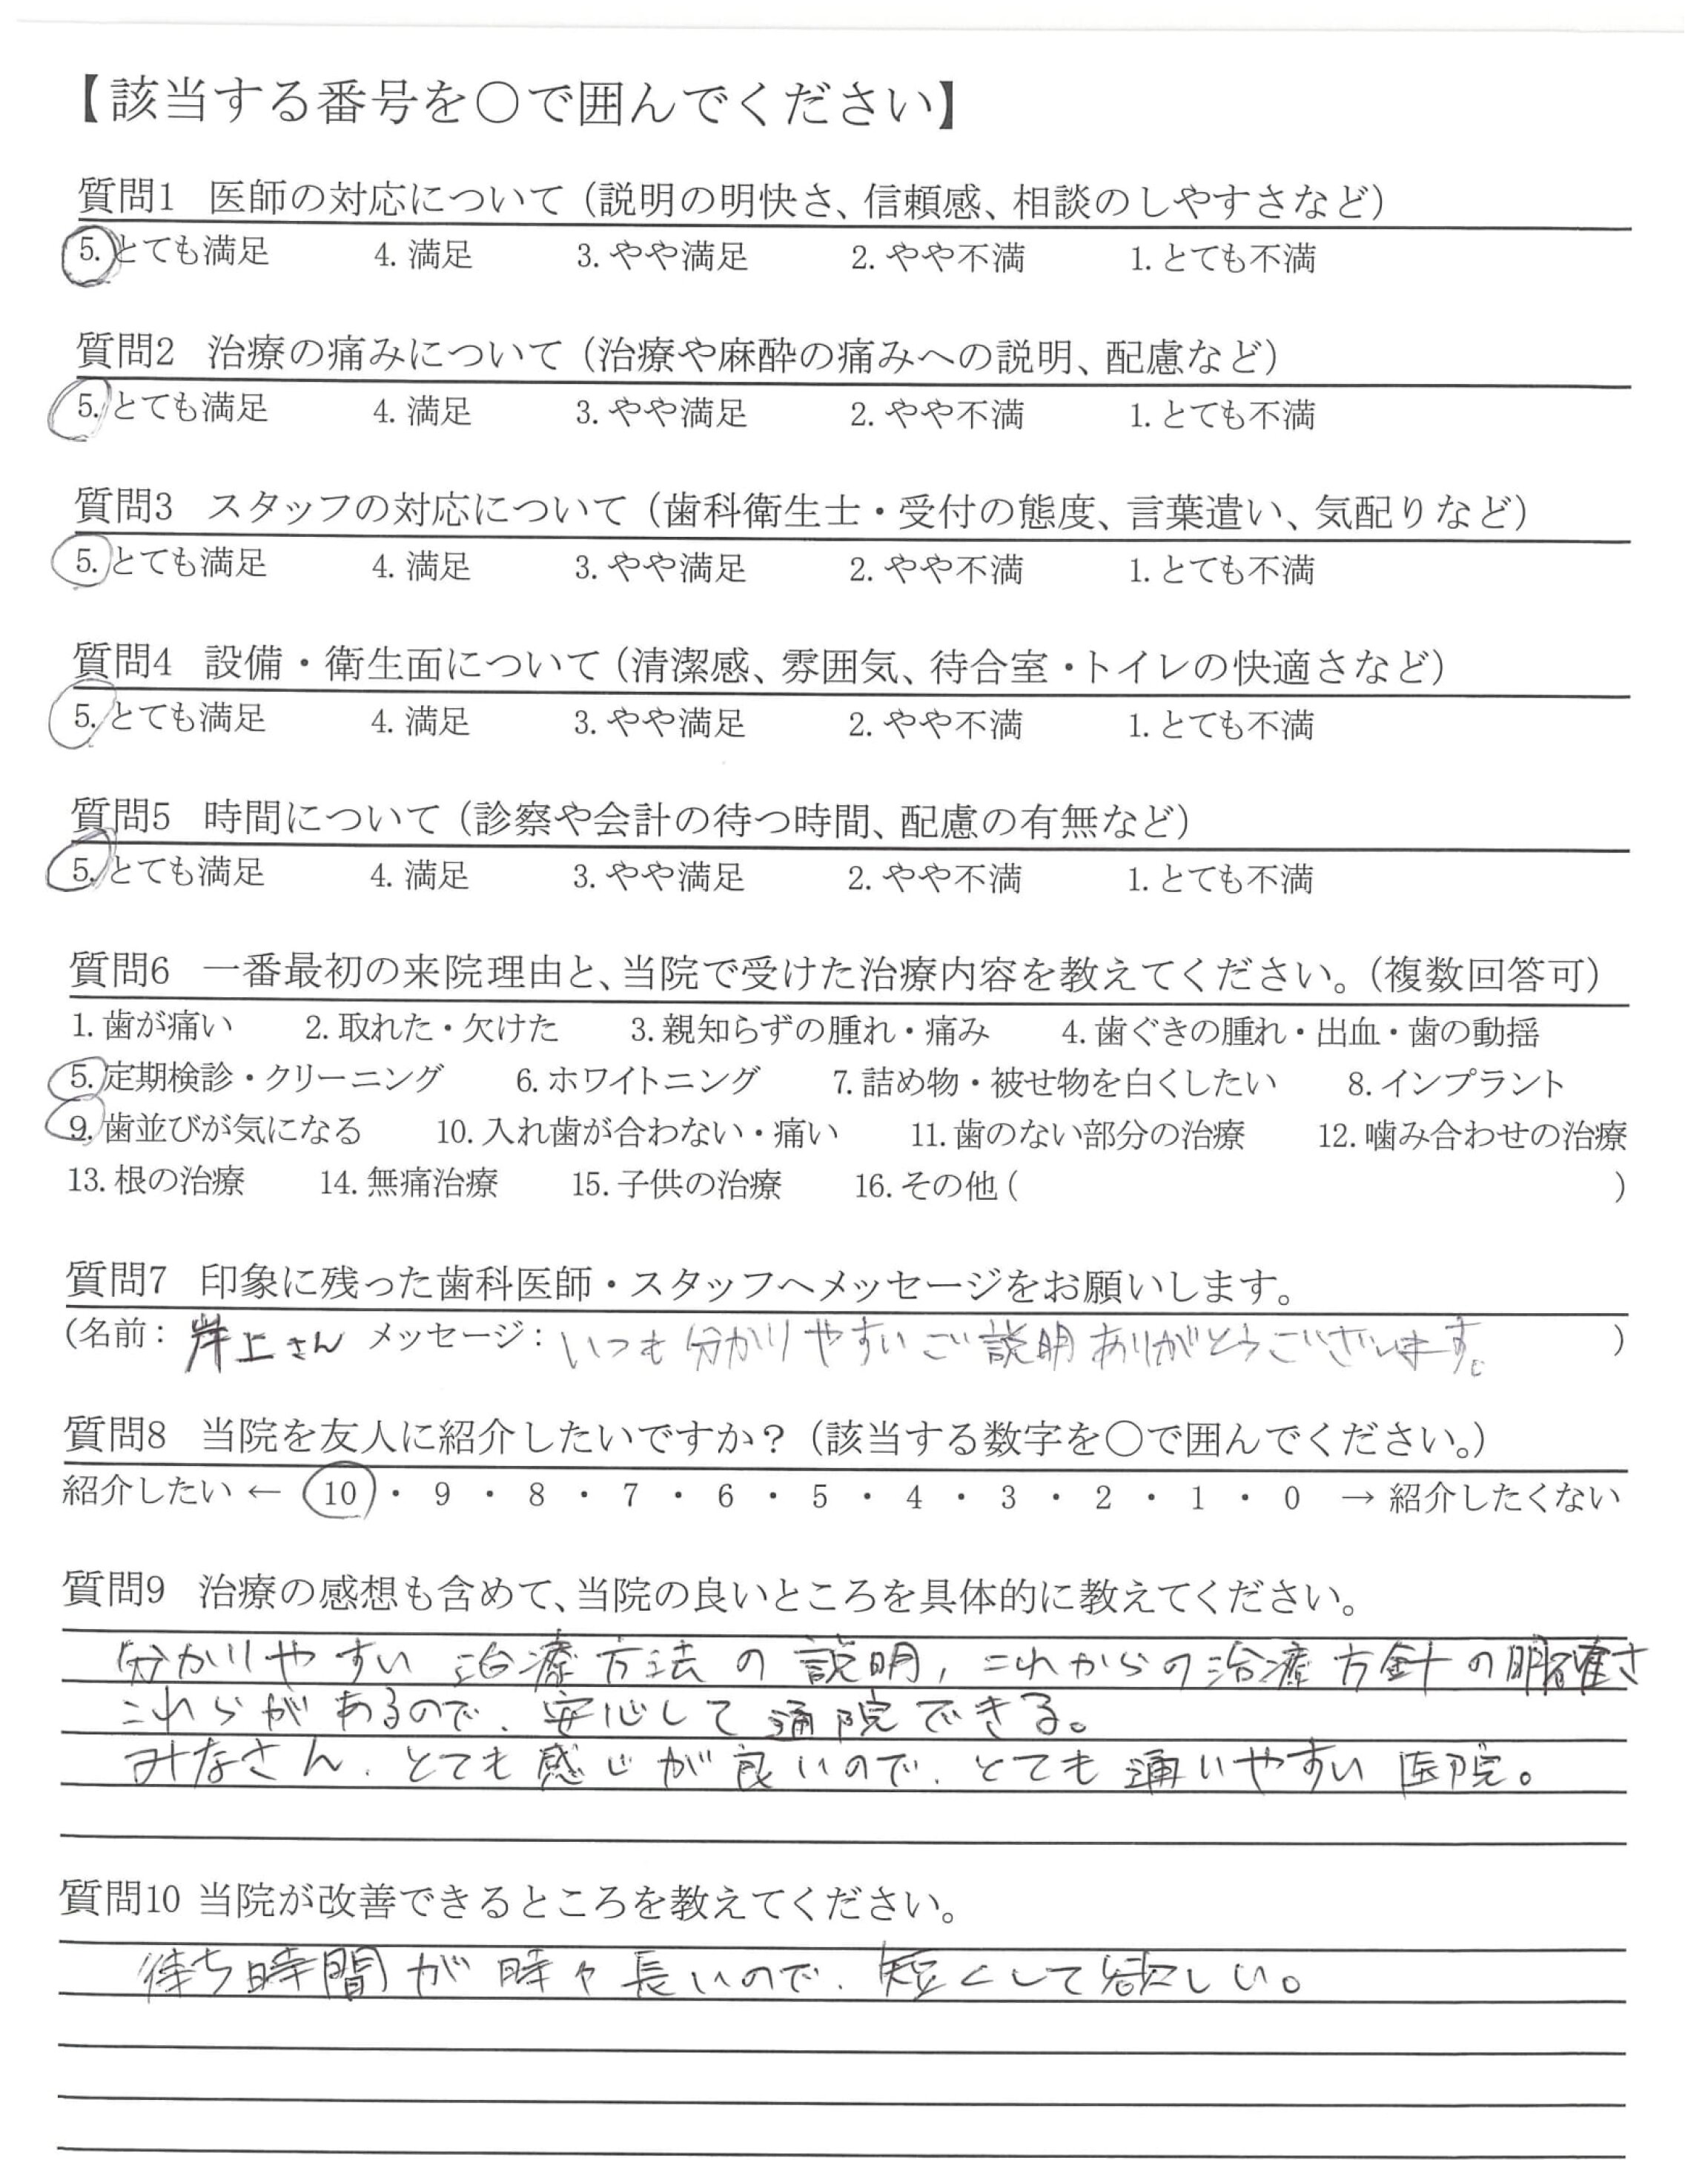 【該当する番号を○で囲んでください】
質問1 医師の対応について（説明の明快さ、信頼感、相談のしやすさなど）
5. とても満足 4. 満足 3. やや満足 2. やや不満 1. とても不満
質問2 治療の痛みについて（治療や麻酔の痛みへの説明、配慮など）
5. とても満足 4. 満足 3. やや満足 2. やや不満 1. とても不満
質問3 スタッフの対応について（歯科衛生士・受付の態度、言葉遣い、気配りなど）
5. とても満足 4. 満足 3. やや満足 2. やや不満 1. とても不満
質問4 設備・衛生面について（清潔感、雰囲気、待合室・トイレの快適さなど）
5. とても満足 4. 満足 3. やや満足 2. やや不満 1. とても不満
質問5 時間について（診察や会計の待つ時間、配慮の有無など）
5. とても満足 4. 満足 3. やや満足 2. やや不満 1. とても不満
質問6 一番最初の来院理由と、当院で受けた治療内容を教えてください。（複数回答可）
1. 歯が痛い 2. 取れた・欠けた 3. 親知らずの腫れ・痛み 4. 歯ぐきの腫れ・出血・歯の動揺
5. 定期検診・クリーニング 6. ホワイトニング 7. 詰め物・被せ物を白くしたい 8. インプラント
9. 歯並びが気になる 10. 入れ歯が合わない・痛い 11. 歯のない部分の治療 12. 噛み合わせの治療
13. 根の治療 14. 無痛治療 15. 子供の治療 16. その他（ ）
質問7 印象に残った歯科医師・スタッフへメッセージをお願いします。
（名前：岸上さん メッセージ：いつも分かりやすいご説明ありがとうございます。）
質問8 当院を友人に紹介したいですか？（該当する数字を○で囲んでください。）
紹介したい ← 10 ・ 9 ・ 8 ・ 7 ・ 6 ・ 5 ・ 4 ・ 3 ・ 2 ・ 1 ・ 0 → 紹介したくない
質問9 治療の感想も含めて、当院の良いところを具体的に教えてください。
分かりやすい治療方法の説明，これからの治療方針の明確さ
これらがあるので、安心して通院できる。
みなさん、とても感じが良いので、とても通いやすい医院。
質問10 当院が改善できるところを教えてください。
待ち時間が時々長いので、短くして欲しい。